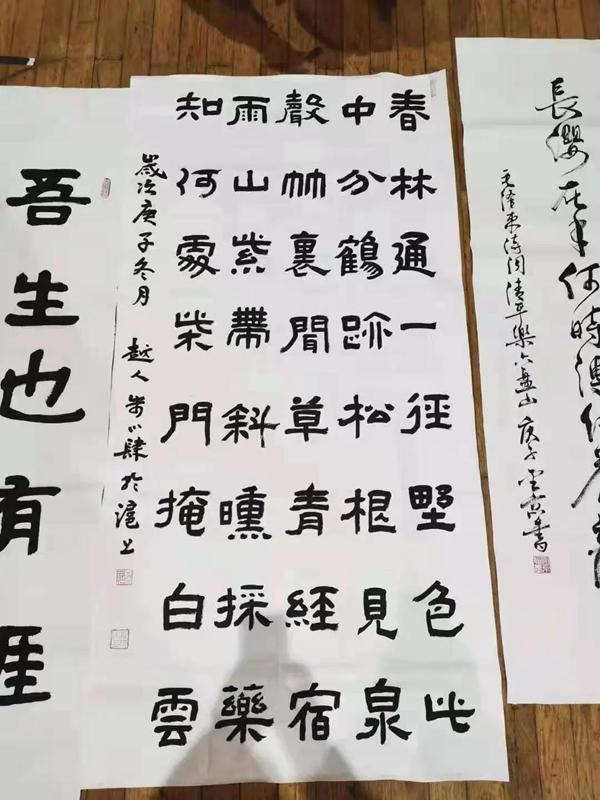 長纓在手何時縛住蒼龍
毛澤東詩詞清平樂六盤山 庚子書
春林通一徑野色此
中分鶴跡松根見泉
聲竹裏聞草青經宿
雨山紫帶斜曛採藥
知何處柴門掩白雲
歲次庚子冬月 越人肆於滬上
吾生也有涯